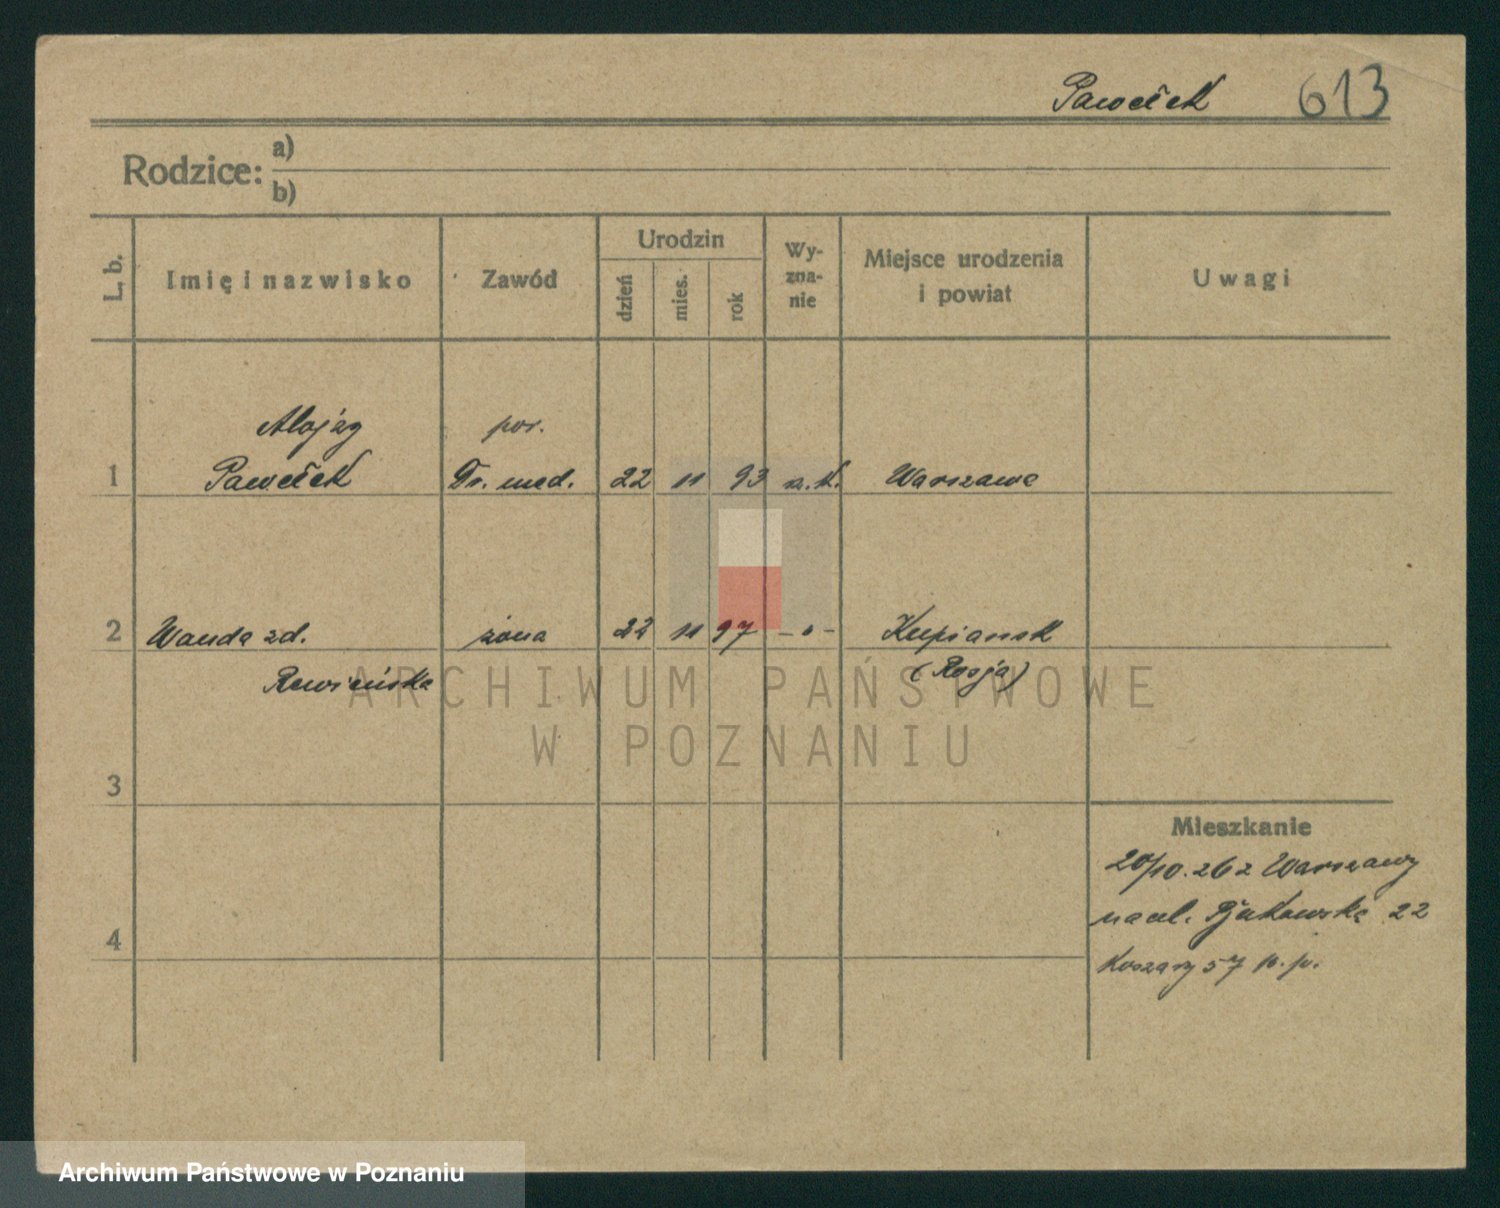 Pawełek 613
Rodzice: a)
b)
L. b.
Imię i nazwisko
Zawód
Urodzin
dzień
mies.
rok
Wy-
zna-
nie
Miejsce urodzenia
i powiat
Uwagi
Alojzy por.
1 Pawełek Dr. med. 22 11 93 r.k. Warszawa
2 Wanda zd. żona 22 11 97 -"- Kupiansk
(Rosja)
ARCHIWUM PAŃSTWOWE
W POZNANIU
3
Mieszkanie
20/10.26 z Warszawy
na ul. Bukowska 22
4
Koszary 57 p.p.
Archiwum Państwowe w Poznaniu